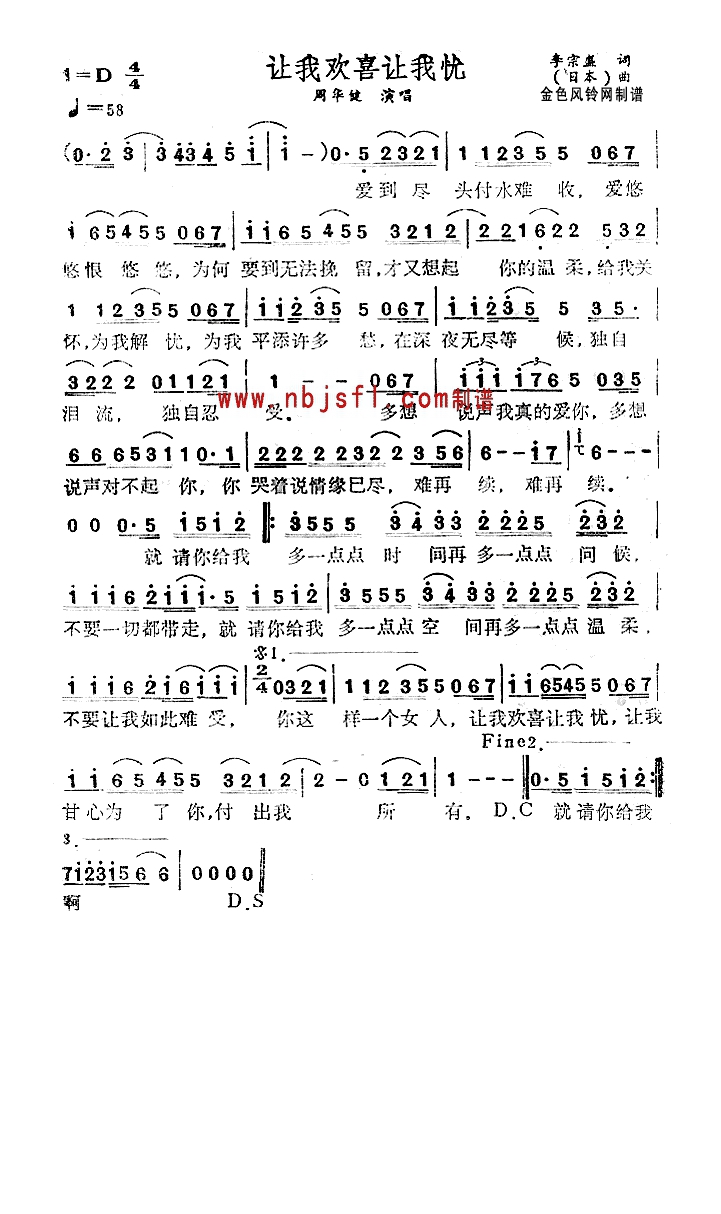 1=D 4/4 让我欢喜让我忧 李宗盛 词
(日本)曲
♩=58 周华健 演唱 金色风铃网制谱
(0·2 3 | 3 43 4 5 1 | 1 - ) 0·5 2321 | 1 1235 5 067 |
爱到尽 头付水难 收,爱悠
1 65455 067 | 1165455 3212 | 221622 532 |
悠恨悠悠,为何 要到无法挽 留,才又想起 你的温柔,给我关
1 12355 067 | 11235 5 067 | 11235 5 35· |
怀,为我解 忧,为我 平添许多 愁,在深 夜无尽等 候,独自
3222 01121 | 1 - - 067 | 111 1765 035 |
泪流, 独自忍 受。 多想 说声我真的爱你,多想
www.nbjsfl.com制谱
66653110·1 | 222 22322 356 | 6 - - 17 | 6 - - · |
说声对不起 你,你 哭着说情缘已尽,难再 续,难再 续。
0 0 0·5 1512 ‖: 3555 34 33 2225 232 |
就 请你给我 多一点点 时 间再 多一点点 问候,
111 6 2111·5 1512 | 3555 3433 2225 232 |
不要一切都带走,就 请你给我 多一点点空 间再多一点点温柔,
𝄋1.
111 6 216111 | 2/4 0321 | 112355067 | 1165455067 |
不要让我如此难受, 你这 样一个女人,让我欢喜让我忧,让我
Fine2.
11 65 455 3212 | 2 - 0 121 | 1 - - - ‖ 0·5 1512 :‖
甘心为 了 你,付 出我 所 有。D.C 就请你给我
3.
7123156 6 | 0000 ‖
啊 D.S